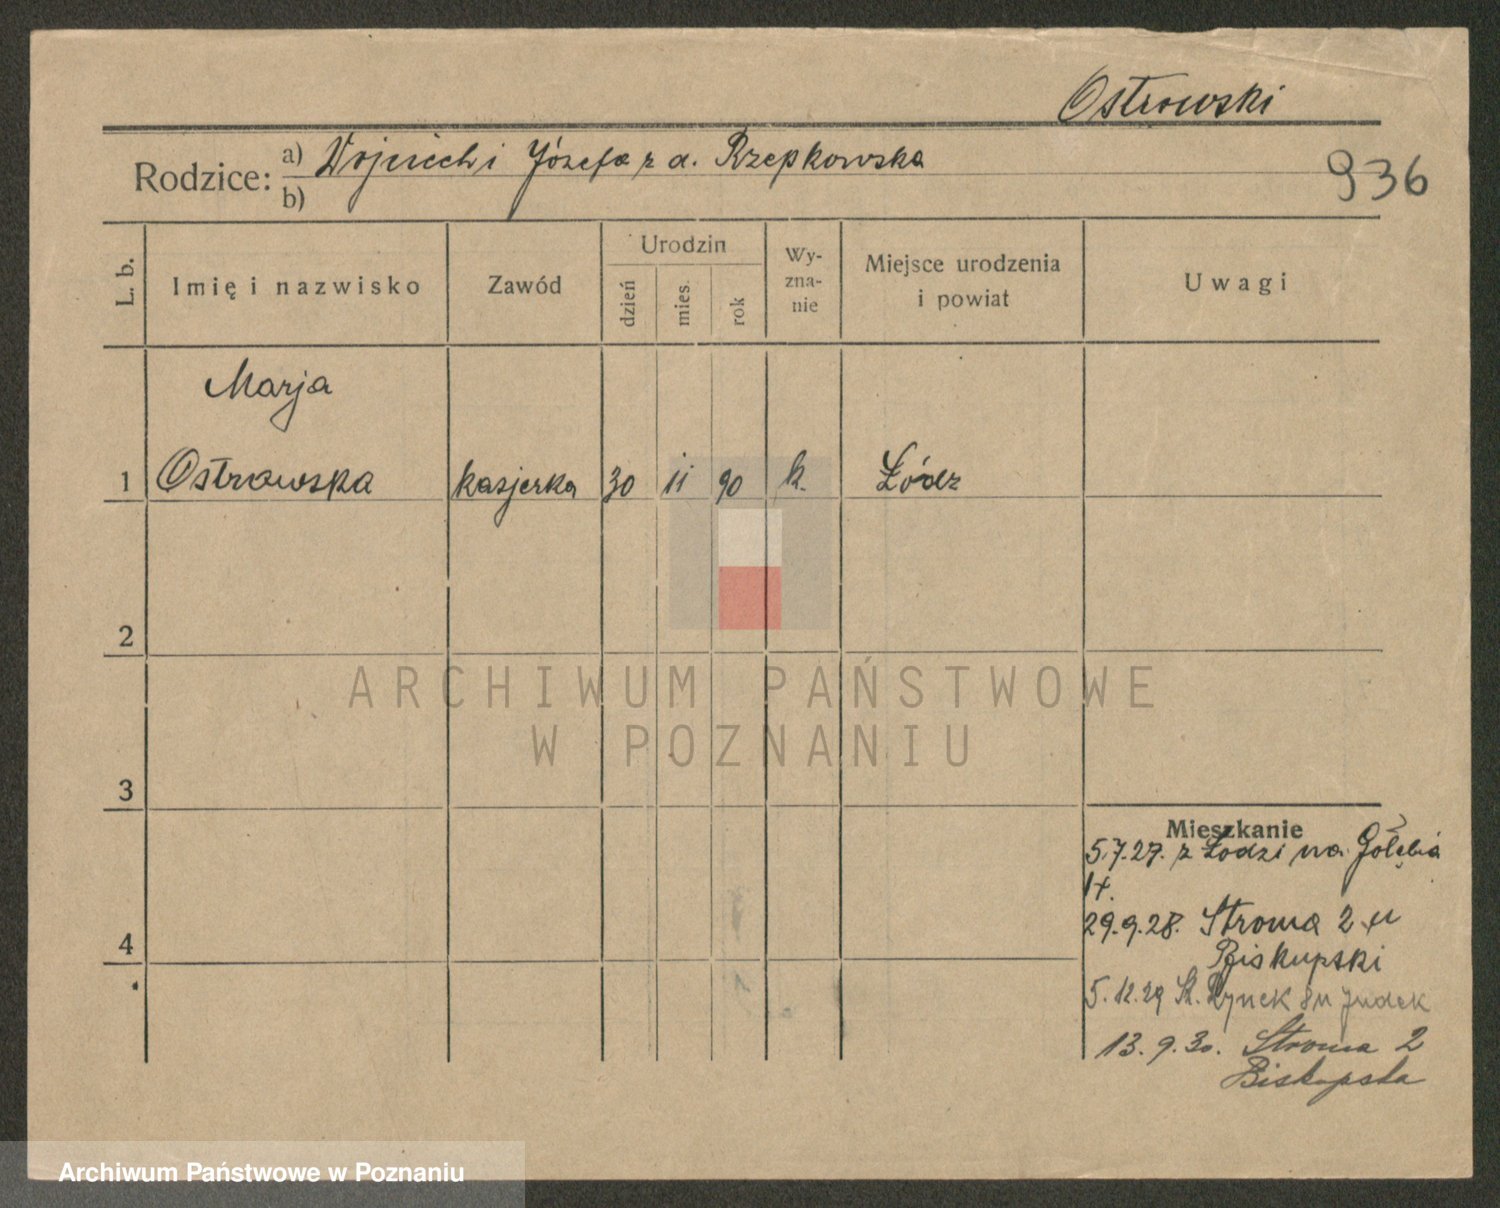 Ostrowski
Rodzice: a) Wojciech i Józefa z d. Rzepkowska
b)
936
L. b.
Imię i nazwisko
Zawód
Urodzin
dzień
mies.
rok
Wy-
zna-
nie
Miejsce urodzenia
i powiat
Uwagi
Marja
1 Ostrowska kasjerka 30 11 90 k. Łódz
2
ARCHIWUM PAŃSTWOWE
W POZNANIU
3
Mieszkanie
5.7.27. z Łodzi na Gołębia
29.9.28. Stroma 2 u
Biskupski
4
5.12.29 St. Rynek 8 u
13.9.30. Stroma 2
Biskupska
Archiwum Państwowe w Poznaniu